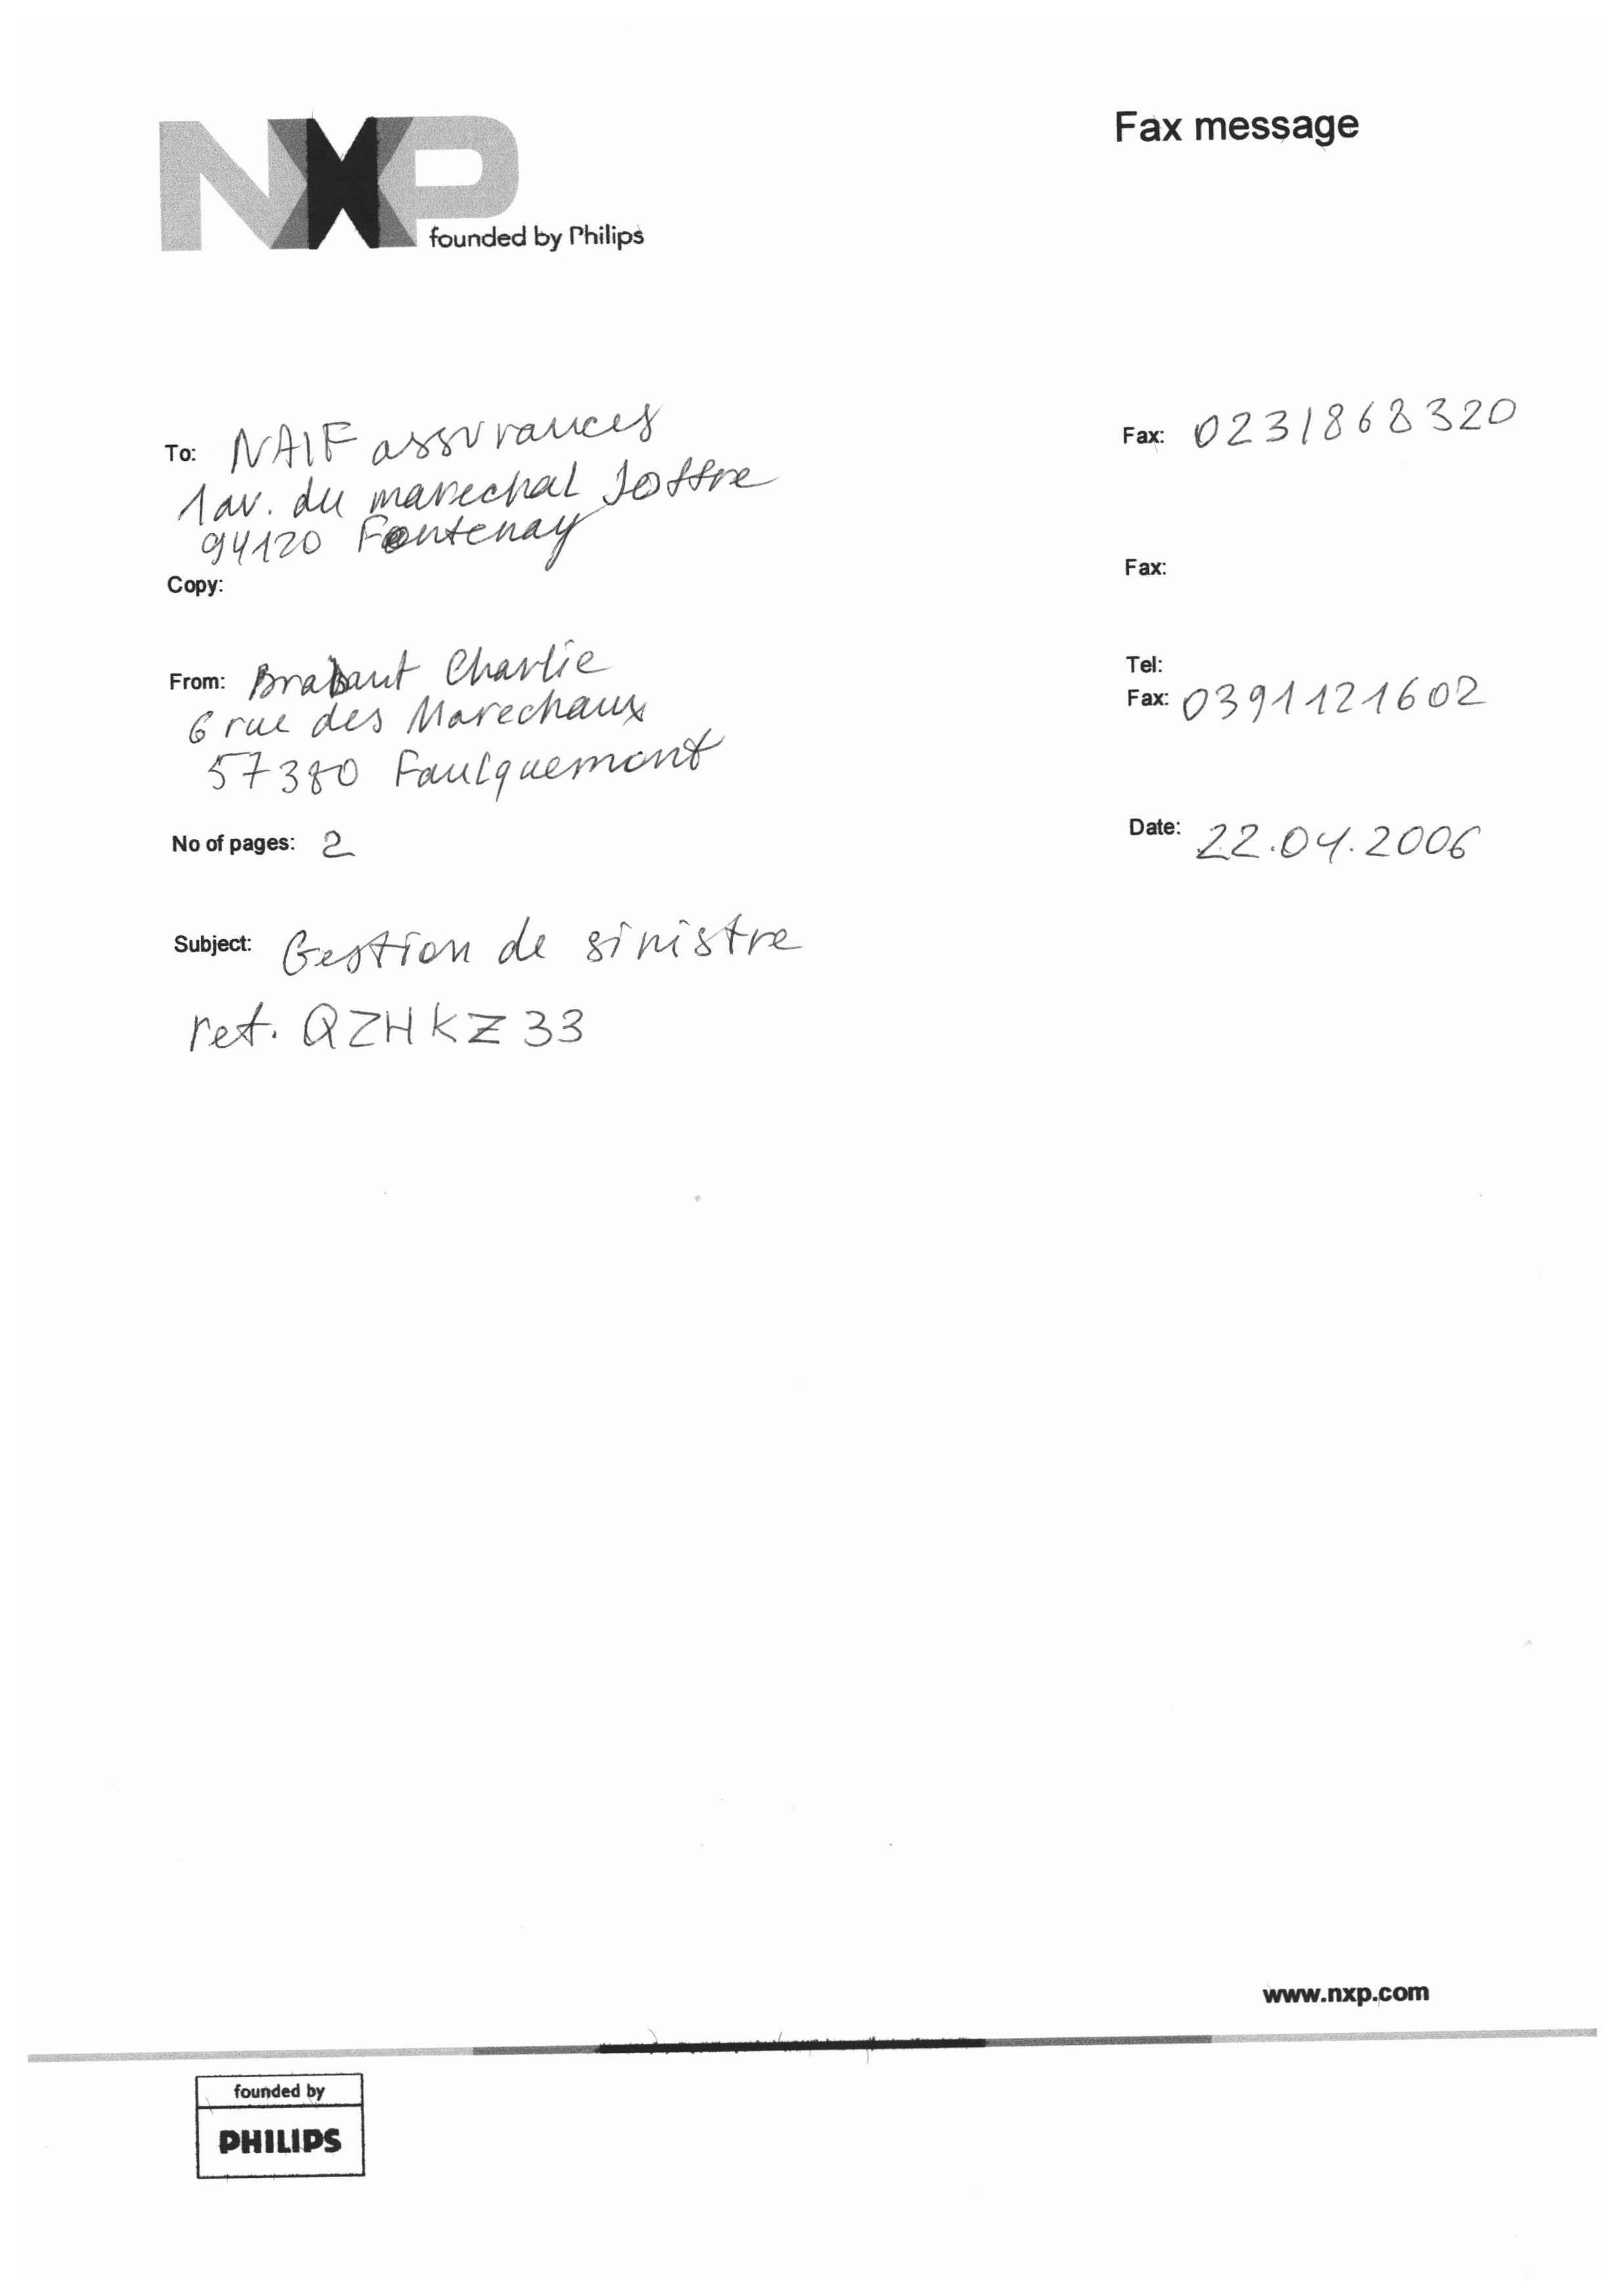 NXP
founded by Philips
Fax message
To: NAIF assurances
1 av. du marechal Joffre
94120 Fontenay
Fax: 0231868320
Copy:
Fax:
From: Brabant Charlie
6 rue des Marechaux
57380 Faulquemont
Tel:
Fax: 0391121602
No of pages: 2
Date: 22.04.2006
Subject: Gestion de sinistre
ref. QZHKZ33
www.nxp.com
founded by
PHILIPS